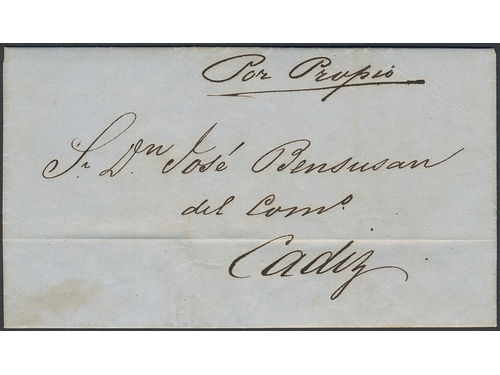 Por Propio
Sr Dn José Bensusan
del Como.
Cadiz